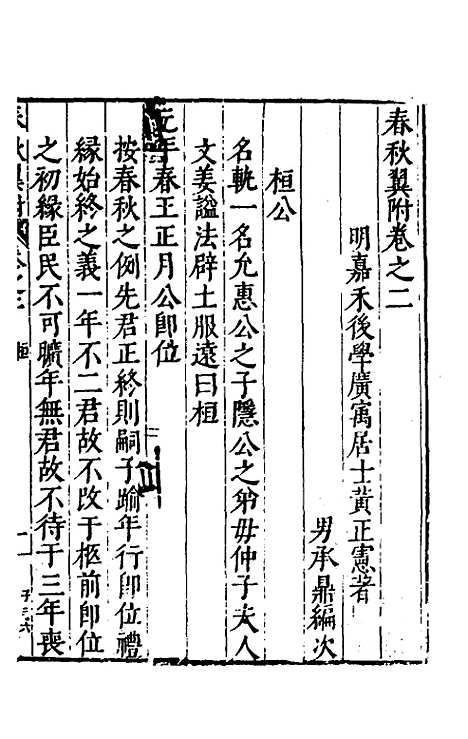 春秋翼附卷之二
明嘉禾後學廣寓居士黃正憲著
男承鼎編次
桓公
名軌一名允惠公之子隱公之弟毋仲子夫人
文姜諡法辟土服遠曰桓
元年春王正月公卽位
按春秋之例先君正終則嗣子踰年行卽位禮
緣始終之義一年不二君故不改于柩前卽位
之初緣臣民不可曠年無君故不待于三年喪
春秋翼附 卷之二 桓 一